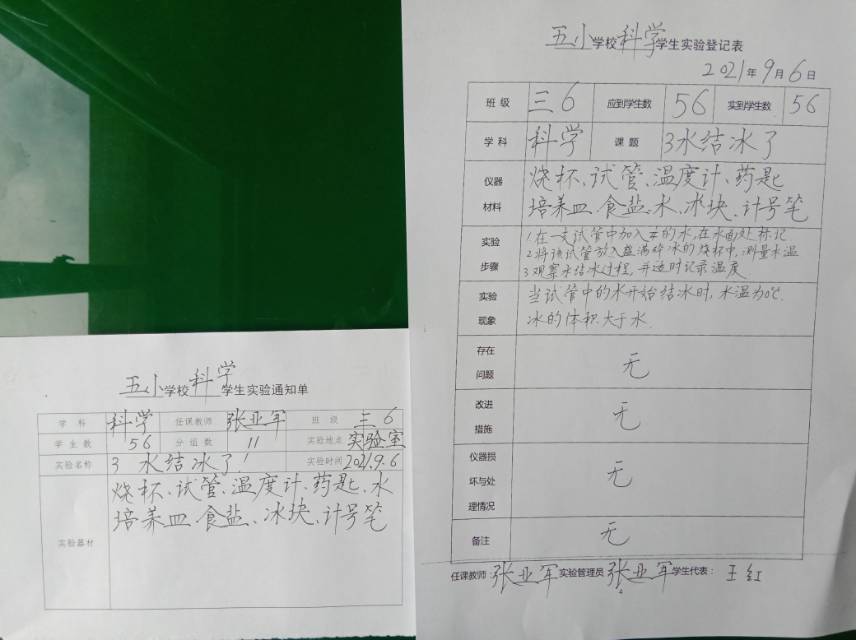 五小学校科学学生实验通知单
学科 科学 任课教师 张亚军 班级 三6
学生数 56 分组数 11 实验地点 实验室
实验名称 3 水结冰了! 实验时间 2021.9.6
实验器材 烧杯、试管、温度计、药匙、水
培养皿、食盐、冰块、计号笔
五小学校科学学生实验登记表
2021年9月6日
班级 三6 应到学生数 56 实到学生数 56
学科 科学 课题 3水结冰了
仪器材料 烧杯、试管、温度计、药匙
培养皿、食盐、水、冰块、计号笔
实验步骤 1.在一支试管中加入 的水,在水面处标记
2.将该试管放入盛满碎冰的烧杯中,测量水温
3.观察水结冰过程,并适时记录温度
实验现象 当试管中的水开始结冰时,水温为0℃.
冰的体积大于水.
存在问题 无
改进措施 无
仪器损坏与处理情况 无
备注 无
任课教师:张亚军 实验管理员 张亚军 学生代表: 王红